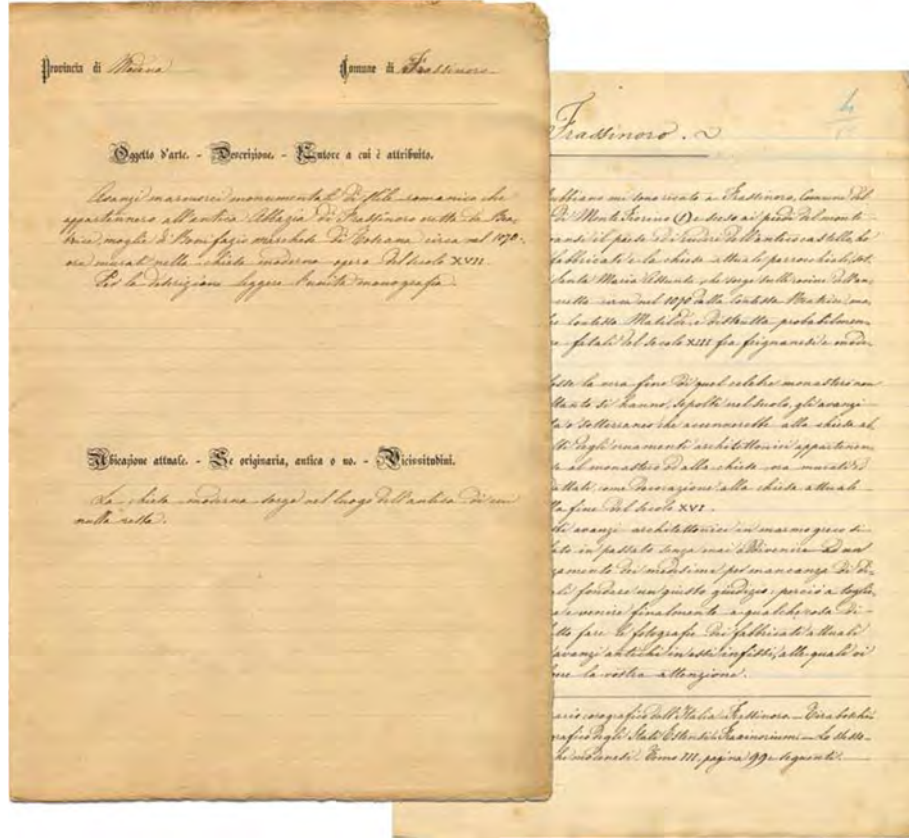 Provincia di Modena Comune di Frassinoro
Oggetto d'arte. - Descrizione. - Autore a cui è attribuito.
Avanzi marmorei monumentali di stile romanico che
appartennero all'antica Abbazia di Frassinoro eretta da Bea-
trice moglie di Bonifazio marchese di Toscana circa nel 1070-
ora murati nella chiesa moderna opera del secolo XVII
Per la descrizione leggere l'unita monografia.
Ubicazione attuale. - Se originaria, antica o no. - Vicissitudini.
La chiesa moderna sorge nel luogo dell'antica di cui
nulla resta.
4
Frassinoro.
me sono recato a Frassinoro, Comune del
di Monte Fiorino (1) e steso ai piedi del monte
il paese ed i ruderi dell'antico castello, ho
fabbricato e la chiesa attuale parrocchiale, sot.
Santa Maria Assunta, che sorge sulle rovine dell'an.
eretta circa nel 1070 dalla Contessa Beatrice, ma.
Contessa Matilde, e distrutta probabilmen.
fatali del secolo XIII fra frignanesi e mode.
la vera fine di quel celebre monastero non
si hanno, sepolti nel suolo, gli avanzi
sotterraneo che accennerebbe alla chiesa ab
degli ornamenti architettonici appartenen.
al monastero od alla chiesa ora murati ed
come decorazione alla chiesa attuale
fine del secolo XVI.
avanzi architettonici in marmo greco si
in passato senza mai addivenire ad un
dei medesimi per mancanza di di-
fondare un giusto giudizio; perciò a toglie.
e venire finalmente a qualche cosa di
fare le fotografie dei fabbricati attuali
avanzi antichi in essi infissi, alle quali vi
la vostra attenzione.
corografico dell'Italia Frassinoro - Tiraboschi
degli Stati Estensi Fraxinorium - Lo stesso-
modenesi Tomo III, pagina 99 e seguenti.